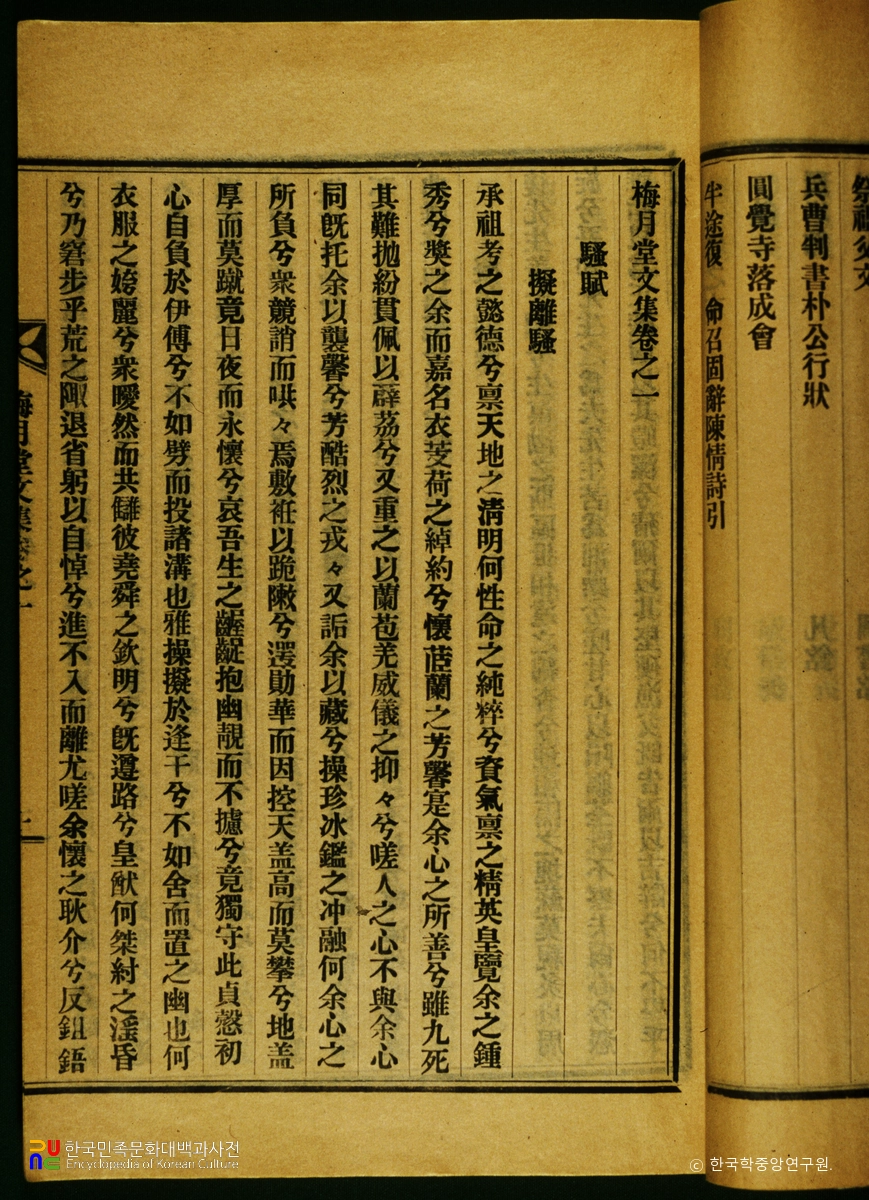 兵曹判書朴公行狀
圓覺寺落成會
半途復 命召固辭陳情詩引
梅月堂文集卷之一
騷賦
擬離騷
承祖考之懿德兮禀天地之淸明何性命之純粹兮賚氣禀之精英皇覽余之鍾
秀兮奬之余而嘉名衣芰荷之綽約兮懷茝蘭之芳馨寔余心之所善兮雖九死
其難抛紛貫佩以薜荔兮又重之以蘭苞羌威儀之抑々兮嗟人之心不與余心
同旣托余以襲馨兮芳酷烈之戎々又詬余以藏兮操珍冰鑑之冲融何余心之
所負兮衆競誚而哄々焉敷袵以跪敶兮遻勛華而因控天盖高而莫攀兮地盖
厚而莫蹴竟日夜而永懷兮哀吾生之齷齪抱幽靚而不攄兮竟獨守此貞慤初
心自負於伊傅兮不如劈而投諸溝也雅操擬於逄干兮不如舍而置之幽也何
衣服之姱麗兮衆曖然而共讎彼堯舜之欽明兮旣遵路兮皇猷何桀紂之滛昏
兮乃窘步乎荒之陬退省躬以自悼兮進不入而離尤嗟余懷之耿介兮反鉏鋙
梅月堂文集卷之一
한국민족문화대백과사전
Encyclopedia of Korean Culture
ⓒ 한국학중앙연구원.